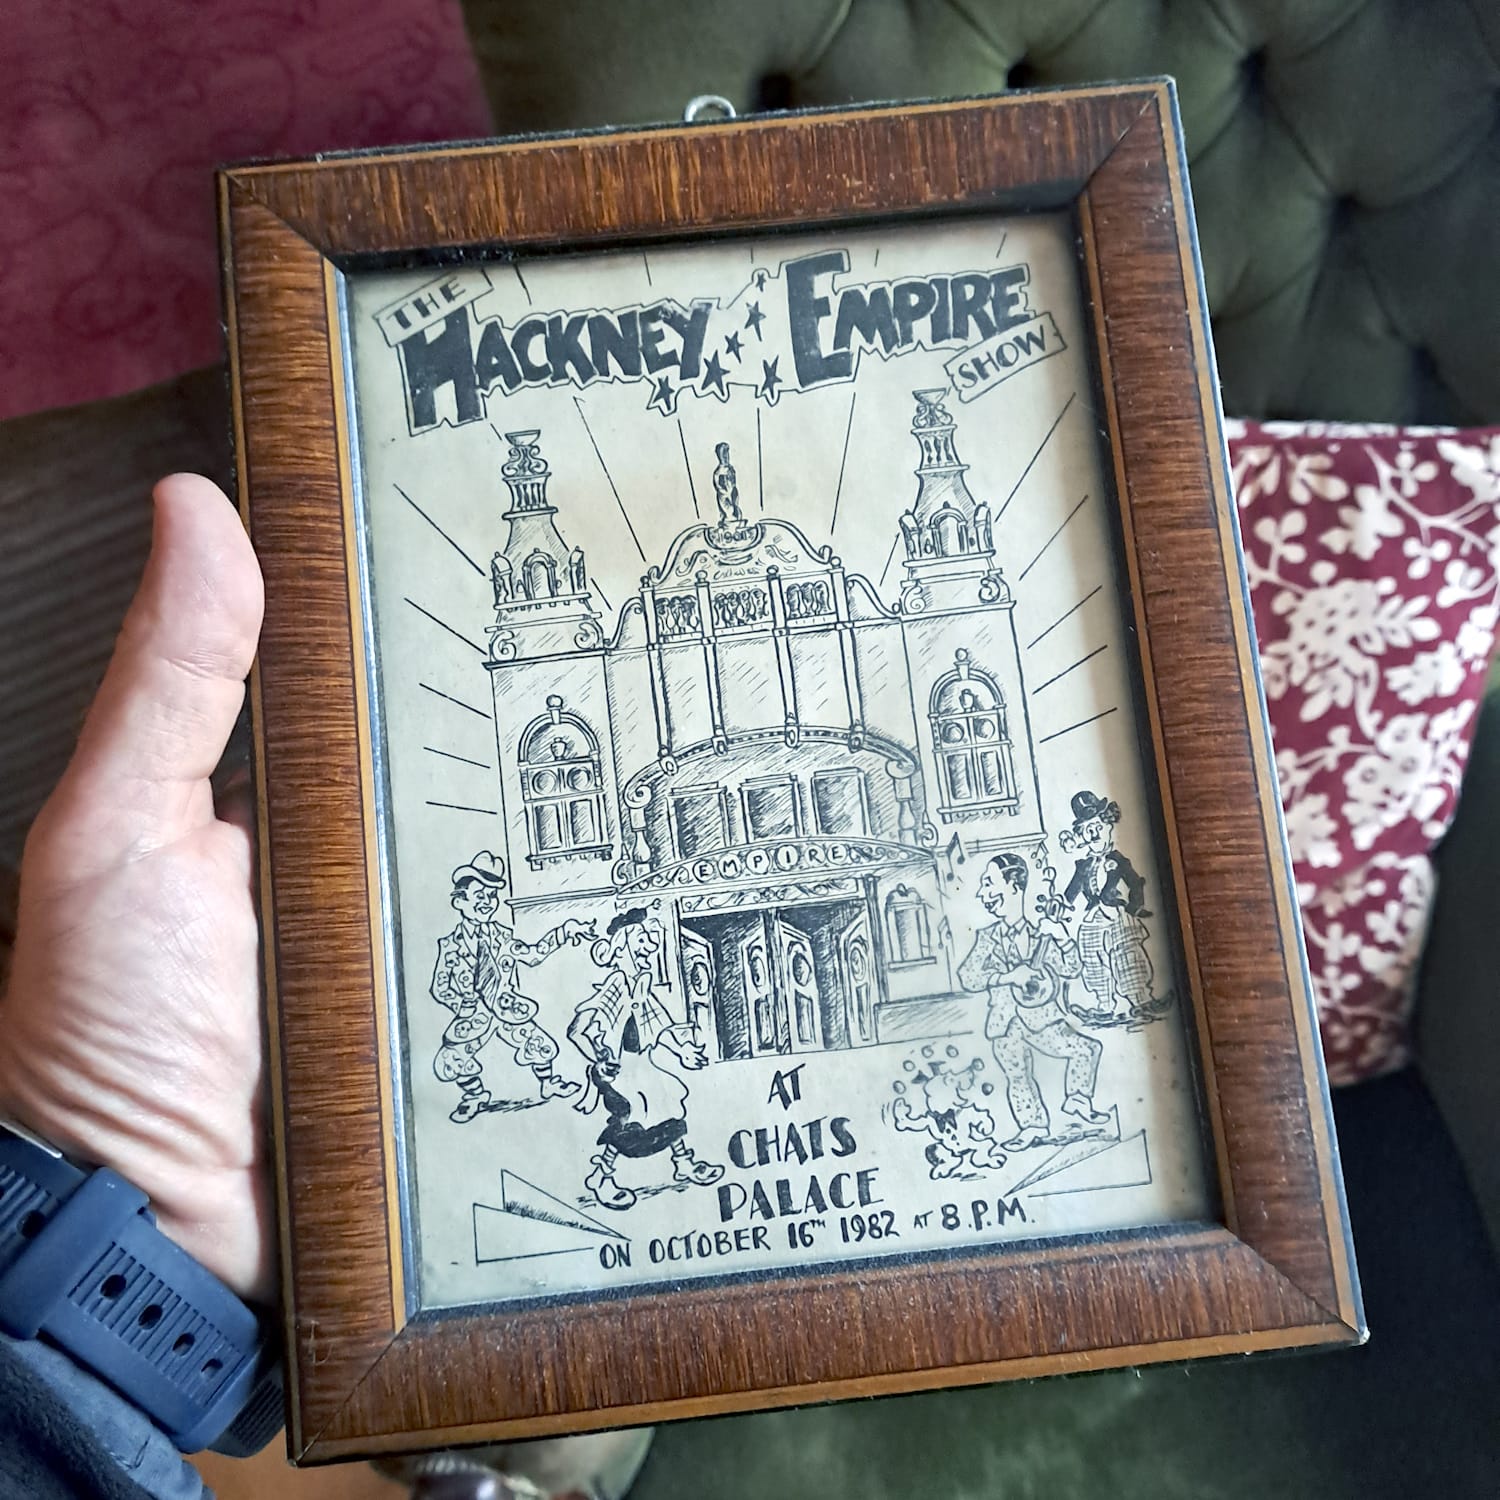 THE
HACKNEY EMPIRE
SHOW
1901
EMPIRE
AT
CHATS
PALACE
ON OCTOBER 16TH 1982 AT 8.P.M.